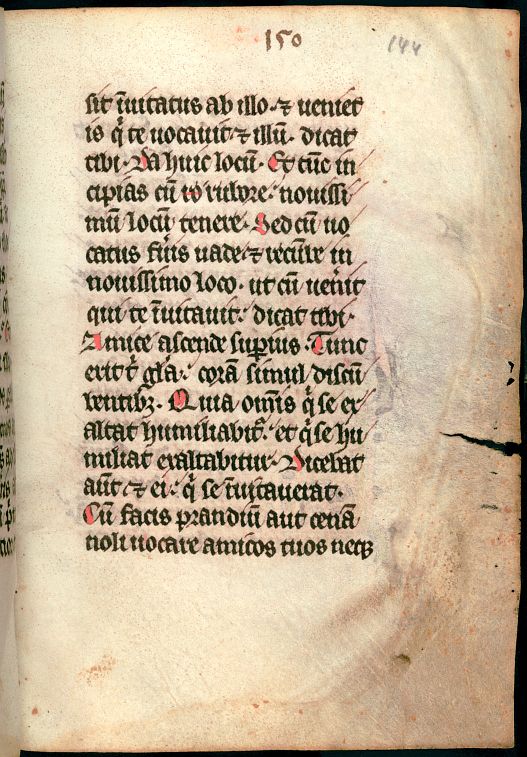 150
144
sit īuitatus ab illo· ⁊ ueniet
is q̇ te uocauit ⁊ illū· dicat
tibi· Da huic locū· Et tūc in
cipias cū ro rubore· nouissi
mū locū tenere· Sed cū uo
catus fu̓is uade ⁊ recūbe in
nouissimo loco· ut cū uen̓it
qui te īuitauit· dicat tibi·
Amice ascende sup̄ius· Tunc
erit t̄ gl̄a· corā simul discū
bentibꝫ· Quia om̄is q̇ se ex
altat humiliabit̄· et q̇ se hu
miliat exaltabitur· Dicebat
aūt ⁊ ei· q̇ se īuitauerat·
Cū facis prandiū aut cenā
noli uocare amicos tuos neqꝫ